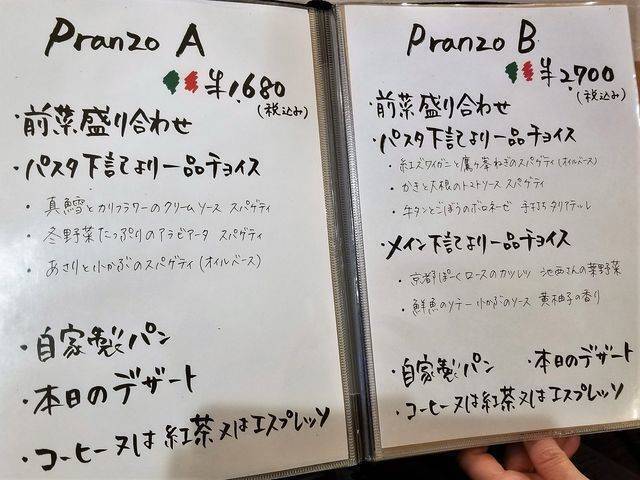 Pranzo A
¥1,680
(税込み)
・前菜盛り合わせ
・パスタ下記より一品チョイス
・真鱈とカリフラワーのクリームソース スパゲティ
・冬野菜たっぷりのアラビアータ スパゲティ
・あさりと小かぶのスパゲティ(オイルベース)
・自家製パン
・本日のデザート
・コーヒー又は紅茶又はエスプレッソ
Pranzo B
¥2,700
(税込み)
・前菜盛り合わせ
・パスタ下記より一品チョイス
・紅ズワイガニと鷹ヶ峯ねぎのスパゲティ(オイルベース)
・かきと大根のトマトソース スパゲティ
・牛タンとごぼうのボロネーゼ 手打ちタリアテッレ
・メイン下記より一品チョイス
・京都ぽーくロースのカツレツ 池西さんの葉野菜
・鮮魚のソテー 小かぶのソース 黄柚子の香り
・自家製パン ・本日のデザート
・コーヒー又は紅茶又はエスプレッソ